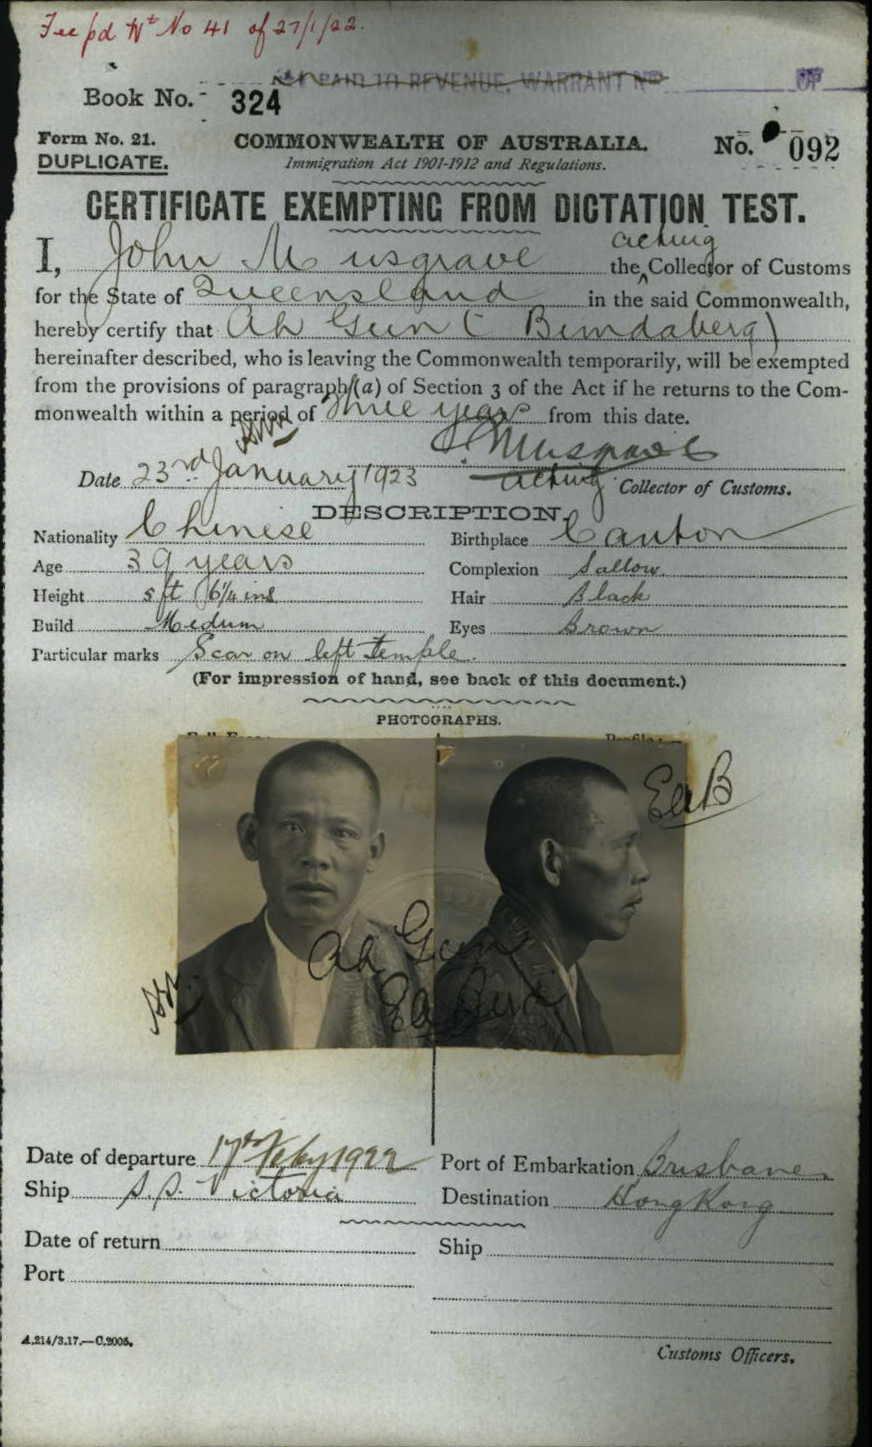 Fee pd Wt No 41 of 27/1/22.
PAID TO REVENUE, WARRANT No OF
Book No. 324
Form No. 21. COMMONWEALTH OF AUSTRALIA. No. 092
DUPLICATE. Immigration Act 1901-1912 and Regulations.
CERTIFICATE EXEMPTING FROM DICTATION TEST.
acting
I, John Musgrave the Collector of Customs
for the State of Queensland in the said Commonwealth,
hereby certify that Ah Gun (Bundaberg)
hereinafter described, who is leaving the Commonwealth temporarily, will be exempted
from the provisions of paragraph (a) of Section 3 of the Act if he returns to the Com-
monwealth within a period of three years from this date.
J. Musgrave
Date 23rd January 1923 acting Collector of Customs.
DESCRIPTION.
Nationality Chinese Birthplace Canton
Age 39 years Complexion Sallow.
Height 5 ft 6 1/4 ins Hair Black
Build Medium Eyes Brown
Particular marks Scar on left temple.
(For impression of hand, see back of this document.)
PHOTOGRAPHS.
Full Face:— Profile:—
EaB
Ah Gun
Date of departure 17th Feby 1922 Port of Embarkation Brisbane.
Ship S.S. Victoria Destination Hong Kong
Date of return Ship
Port
A.214/3.17.—C.2005.
Customs Officers.